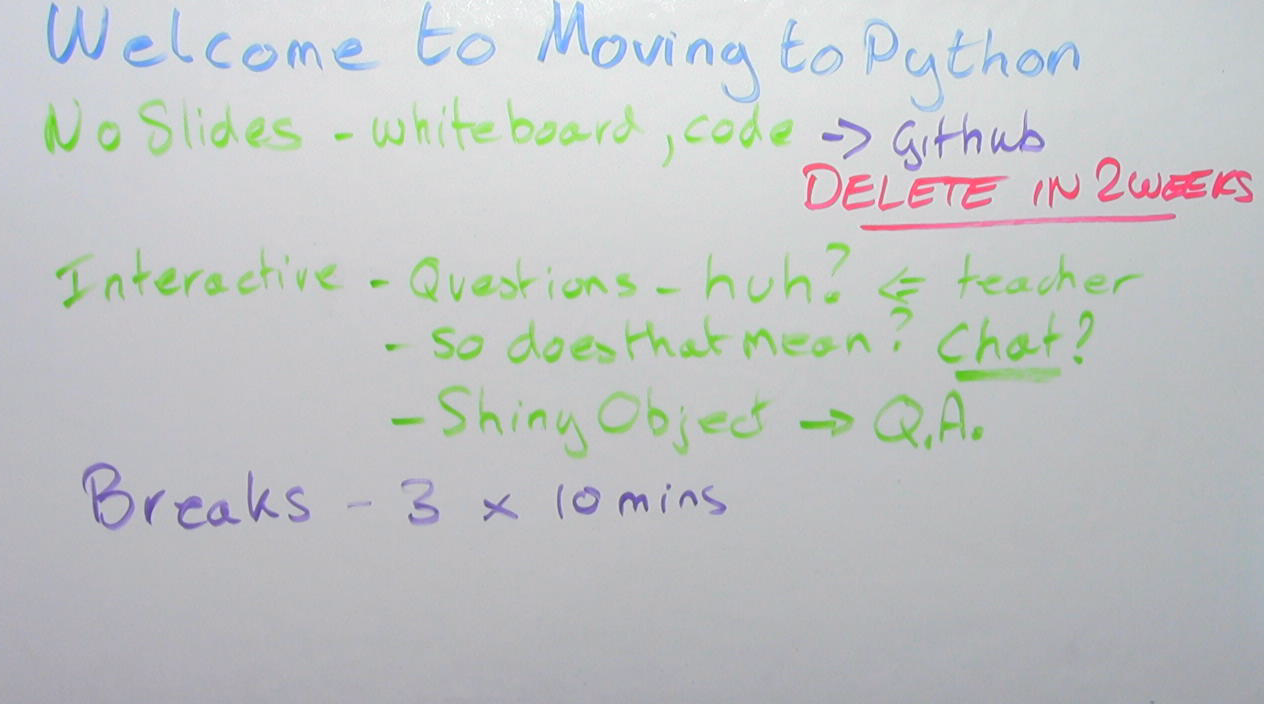 Welcome to Moving to Python
No Slides - whiteboard, code -> Github
DELETE IN 2 WEEKS
Interactive - Questions - huh? <= teacher
- so does that mean? Chat?
- Shiny Object -> Q.A.
Breaks - 3 x 10 mins